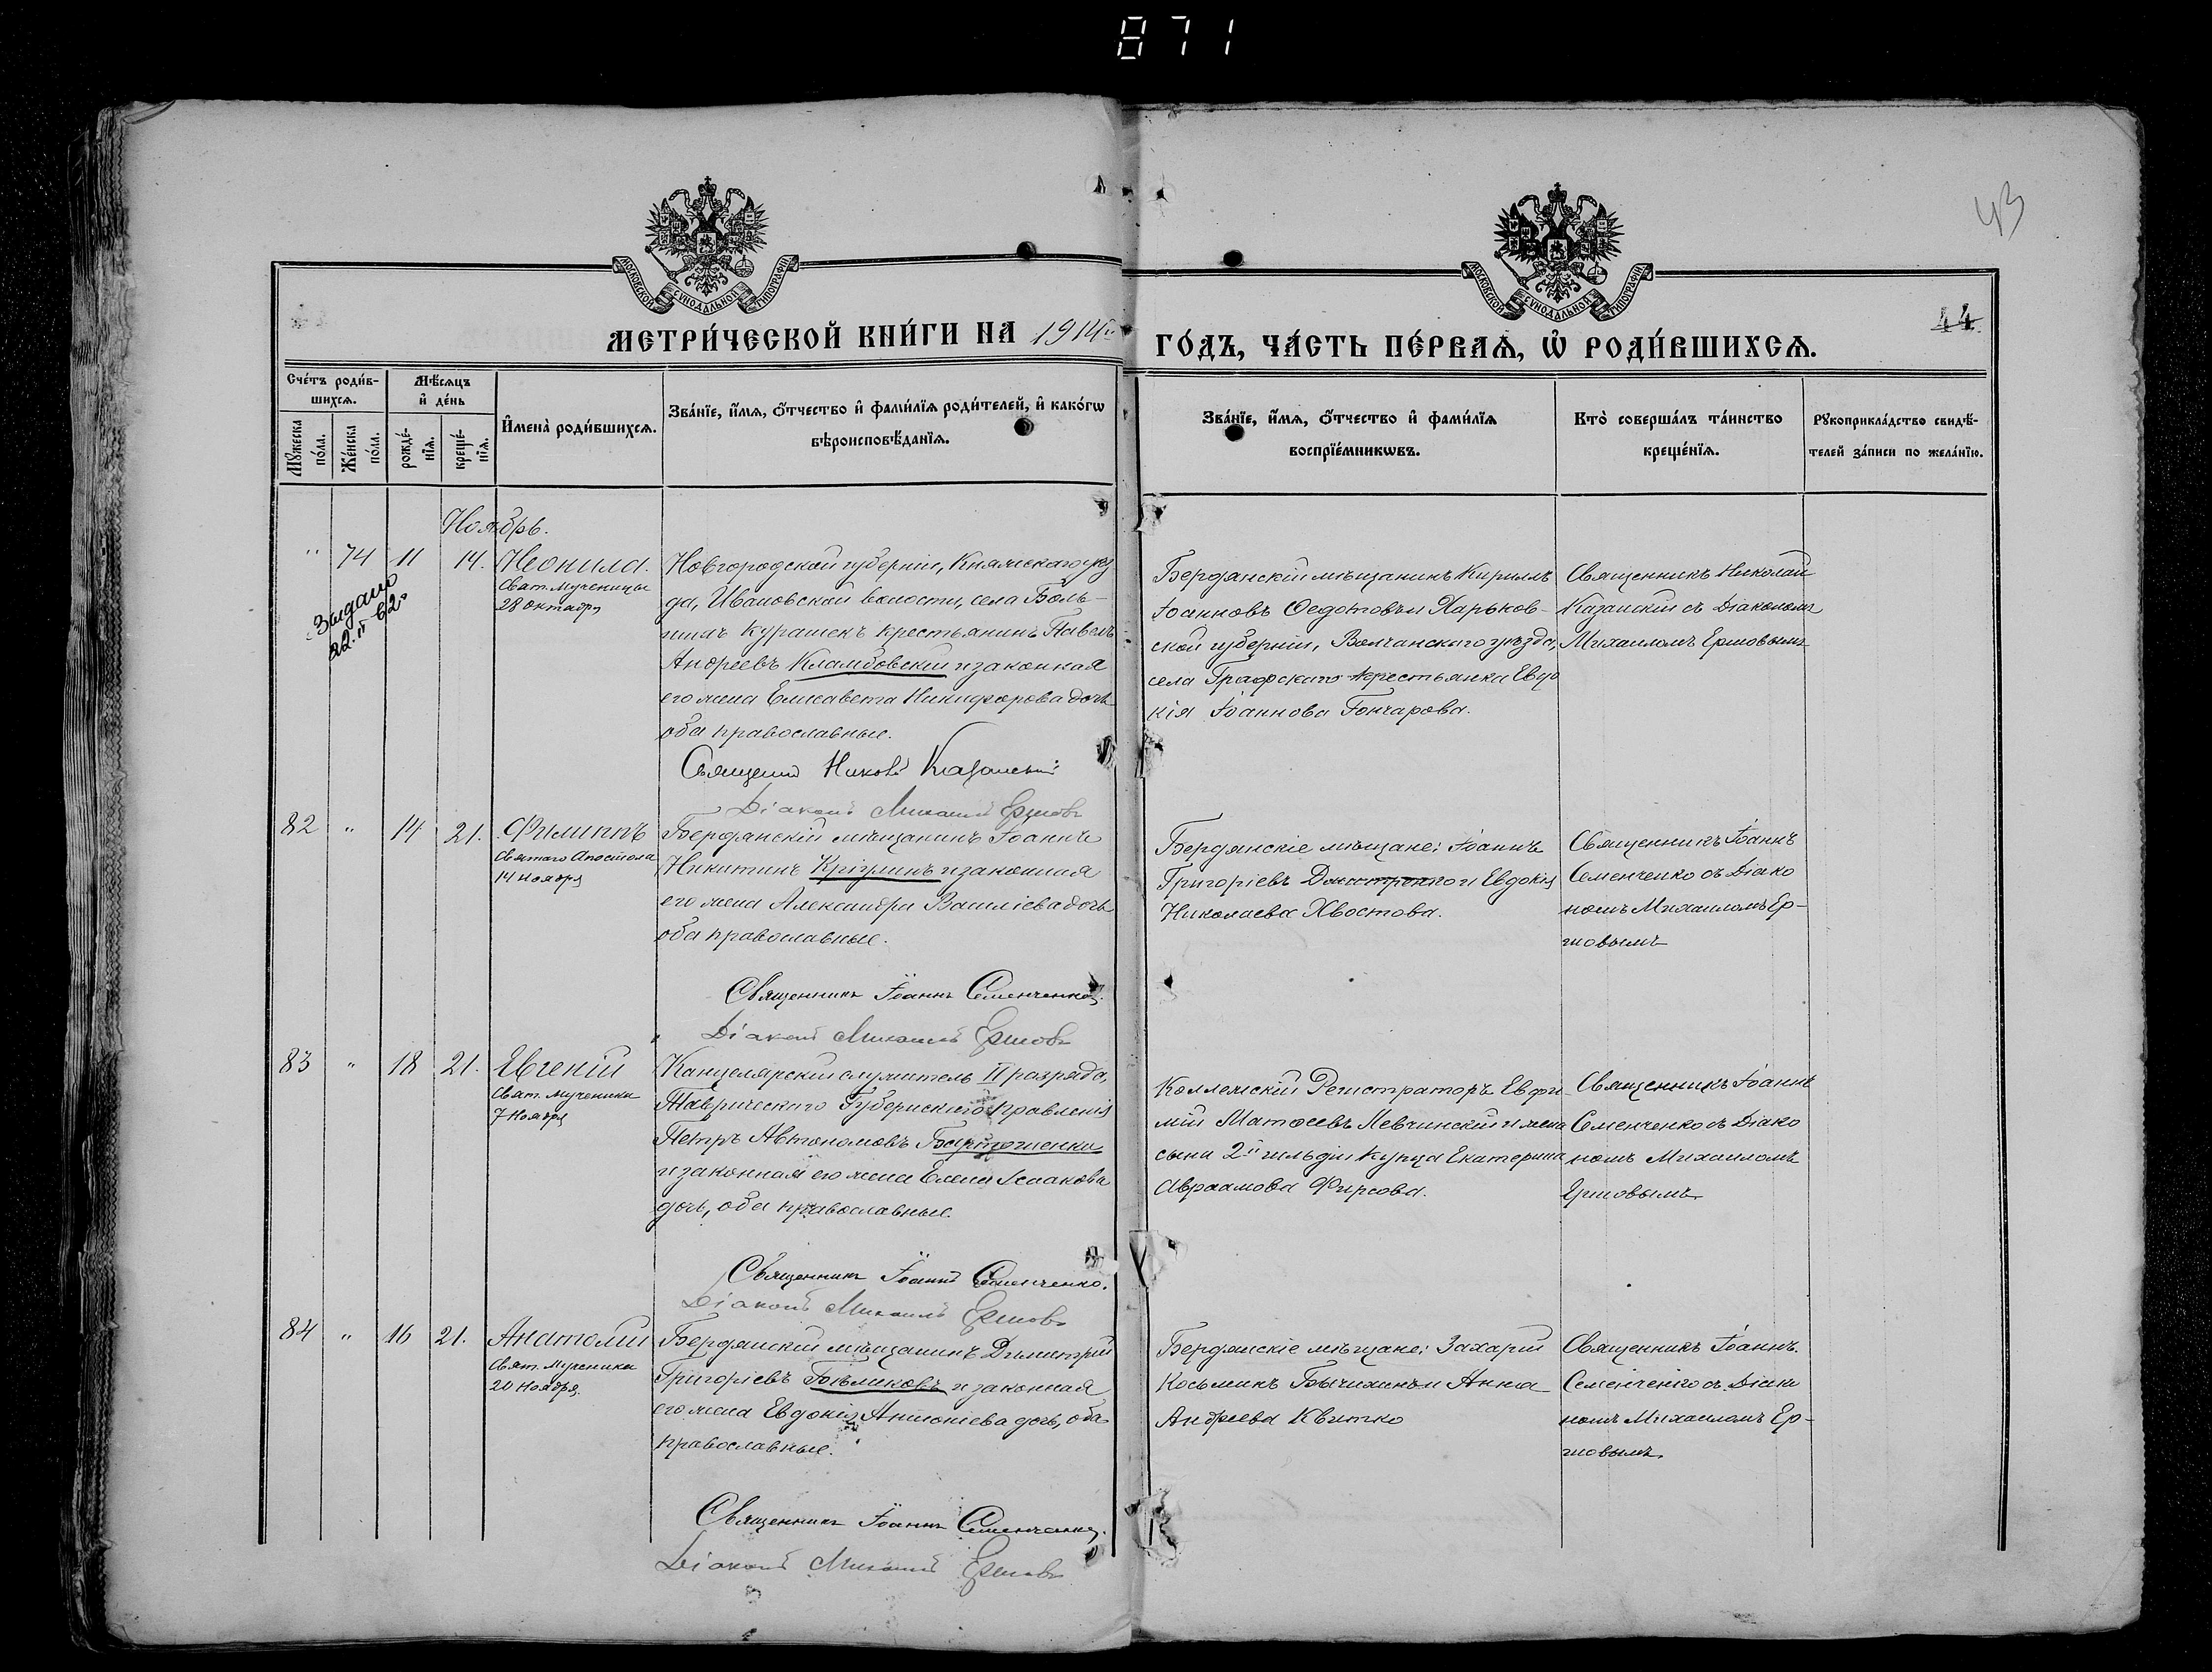 871
43
44
МОСКОВСКОЙ СУНОДАЛЬНОЙ ТИПОГРАФІИ
МОСКОВСКОЙ СУНОДАЛЬНОЙ ТИПОГРАФІИ
МЕТРИ́ЧЕСКОЙ КНИ́ГИ НА 1914й
ГО́ДЪ, ЧА́СТЬ ПЕ́РВАѦ, Ѡ҆ РОДИ́ВШИХСѦ.
Сче́тъ роди́в-
шихсѧ.
Мꙋ́жеска по́ла.
Же́нска по́ла.
Мѣ́сѧцъ
и҆ де́нь
рожде́-
нїѧ.
креще́-
нїѧ.
И҆мена̀ роди́вшихсѧ.
Зва́нїе, и҆́мѧ, ѻ҆́тчество и҆ фами́лїѧ роди́телей, и҆ како́гѡ
вѣроисповѣ́данїѧ.
Зва́нїе, и҆́мѧ, ѻ҆́тчество и҆ фами́лїѧ
воспрїе́мникѡвъ.
Кто̀ соверша́лъ та́инство
креще́нїѧ.
Рꙋкоприкла́дство свидѣ́-
телей за́писи по жела́нїю.
Ноябрь.
" 74 11 14. Неонила.
Свят. мученицы
28 октября
Видано
22.II-62
Новгородской губерніи,
да, Ивановской волости, села Боль-
крестьянинъ Павелъ
Андреевъ и законная
его жена Елисавета Никифорова дочь
оба православные.
Священникъ Николай Казанскій
Діаконъ Михаилъ Ершовъ
Бердянскій мѣщанинъ Кириллъ
Іоанновъ Ѳедотовъ и Харьков-
ской губерніи, Волчанскаго уѣзда,
села Графскаго крестьянка Евдо
кія Іоаннова Гончарова.
Священникъ Николай
Казанскій съ Діакономъ
Михаиломъ Ершовымъ
82 " 14 21. Филиппъ
Святаго Апостола
14 ноября
Бердянскій мѣщанинъ Іоаннъ
Никитинъ и законная
его жена Александра Василіева дочь
оба православные.
Священникъ Іоаннъ Семенченко.
Діаконъ Михаилъ Ершовъ
Бердянскіе мѣщане: Іоаннъ
Григоріевъ Дмитренко и Евдокія
Николаева Хвостова.
Священникъ Іоаннъ
Семенченко съ Діако
номъ Михаиломъ Ер-
шовымъ
83 " 18 21. Евгеній
Свят. мученика
7 Ноября
Канцелярскій служитель II разряда,
Таврическаго Губернскаго Правленія
Петръ Автономовъ
и законная его жена Елена Исаакова
дочь, оба православные.
Священникъ Іоаннъ Семенченко.
Діаконъ Михаилъ Ершовъ
Коллежскій Регистраторъ Евфи
мій Матвеевъ Левчинскій и жена
сына 2й гильдіи купца Екатерина
Авраамова Фирсова.
Священникъ Іоаннъ
Семенченко съ Діако
номъ Михаиломъ
Ершовымъ
84 " 16 21. Анатолій
Свят. Мученика
20 Ноября.
Бердянскій мѣщанинъ Димитрій
Григоріевъ Бѣликовъ и законная
его жена Евдокія Антоніева дочь, оба
православные.
Священникъ Іоаннъ Семенченко.
Діаконъ Михаилъ Ершовъ
Бердянскіе мѣщане: Захарій
Косьминъ Бычихинъ и Анна
Андреева Квитко
Священникъ Іоаннъ
Семенченко съ Діако
номъ Михаиломъ Ер-
шовымъ.